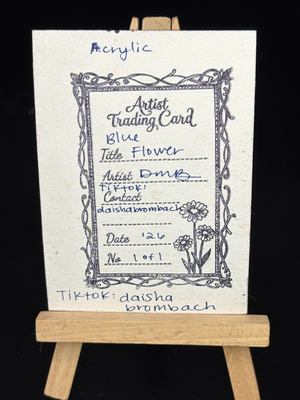 Acrylic
Artist
Trading Card
Blue
Title Flower
Artist DMB
TikTok:
Contact
daishabrombach
Date '26
No. 1 of 1
TikTok: daisha
brombach